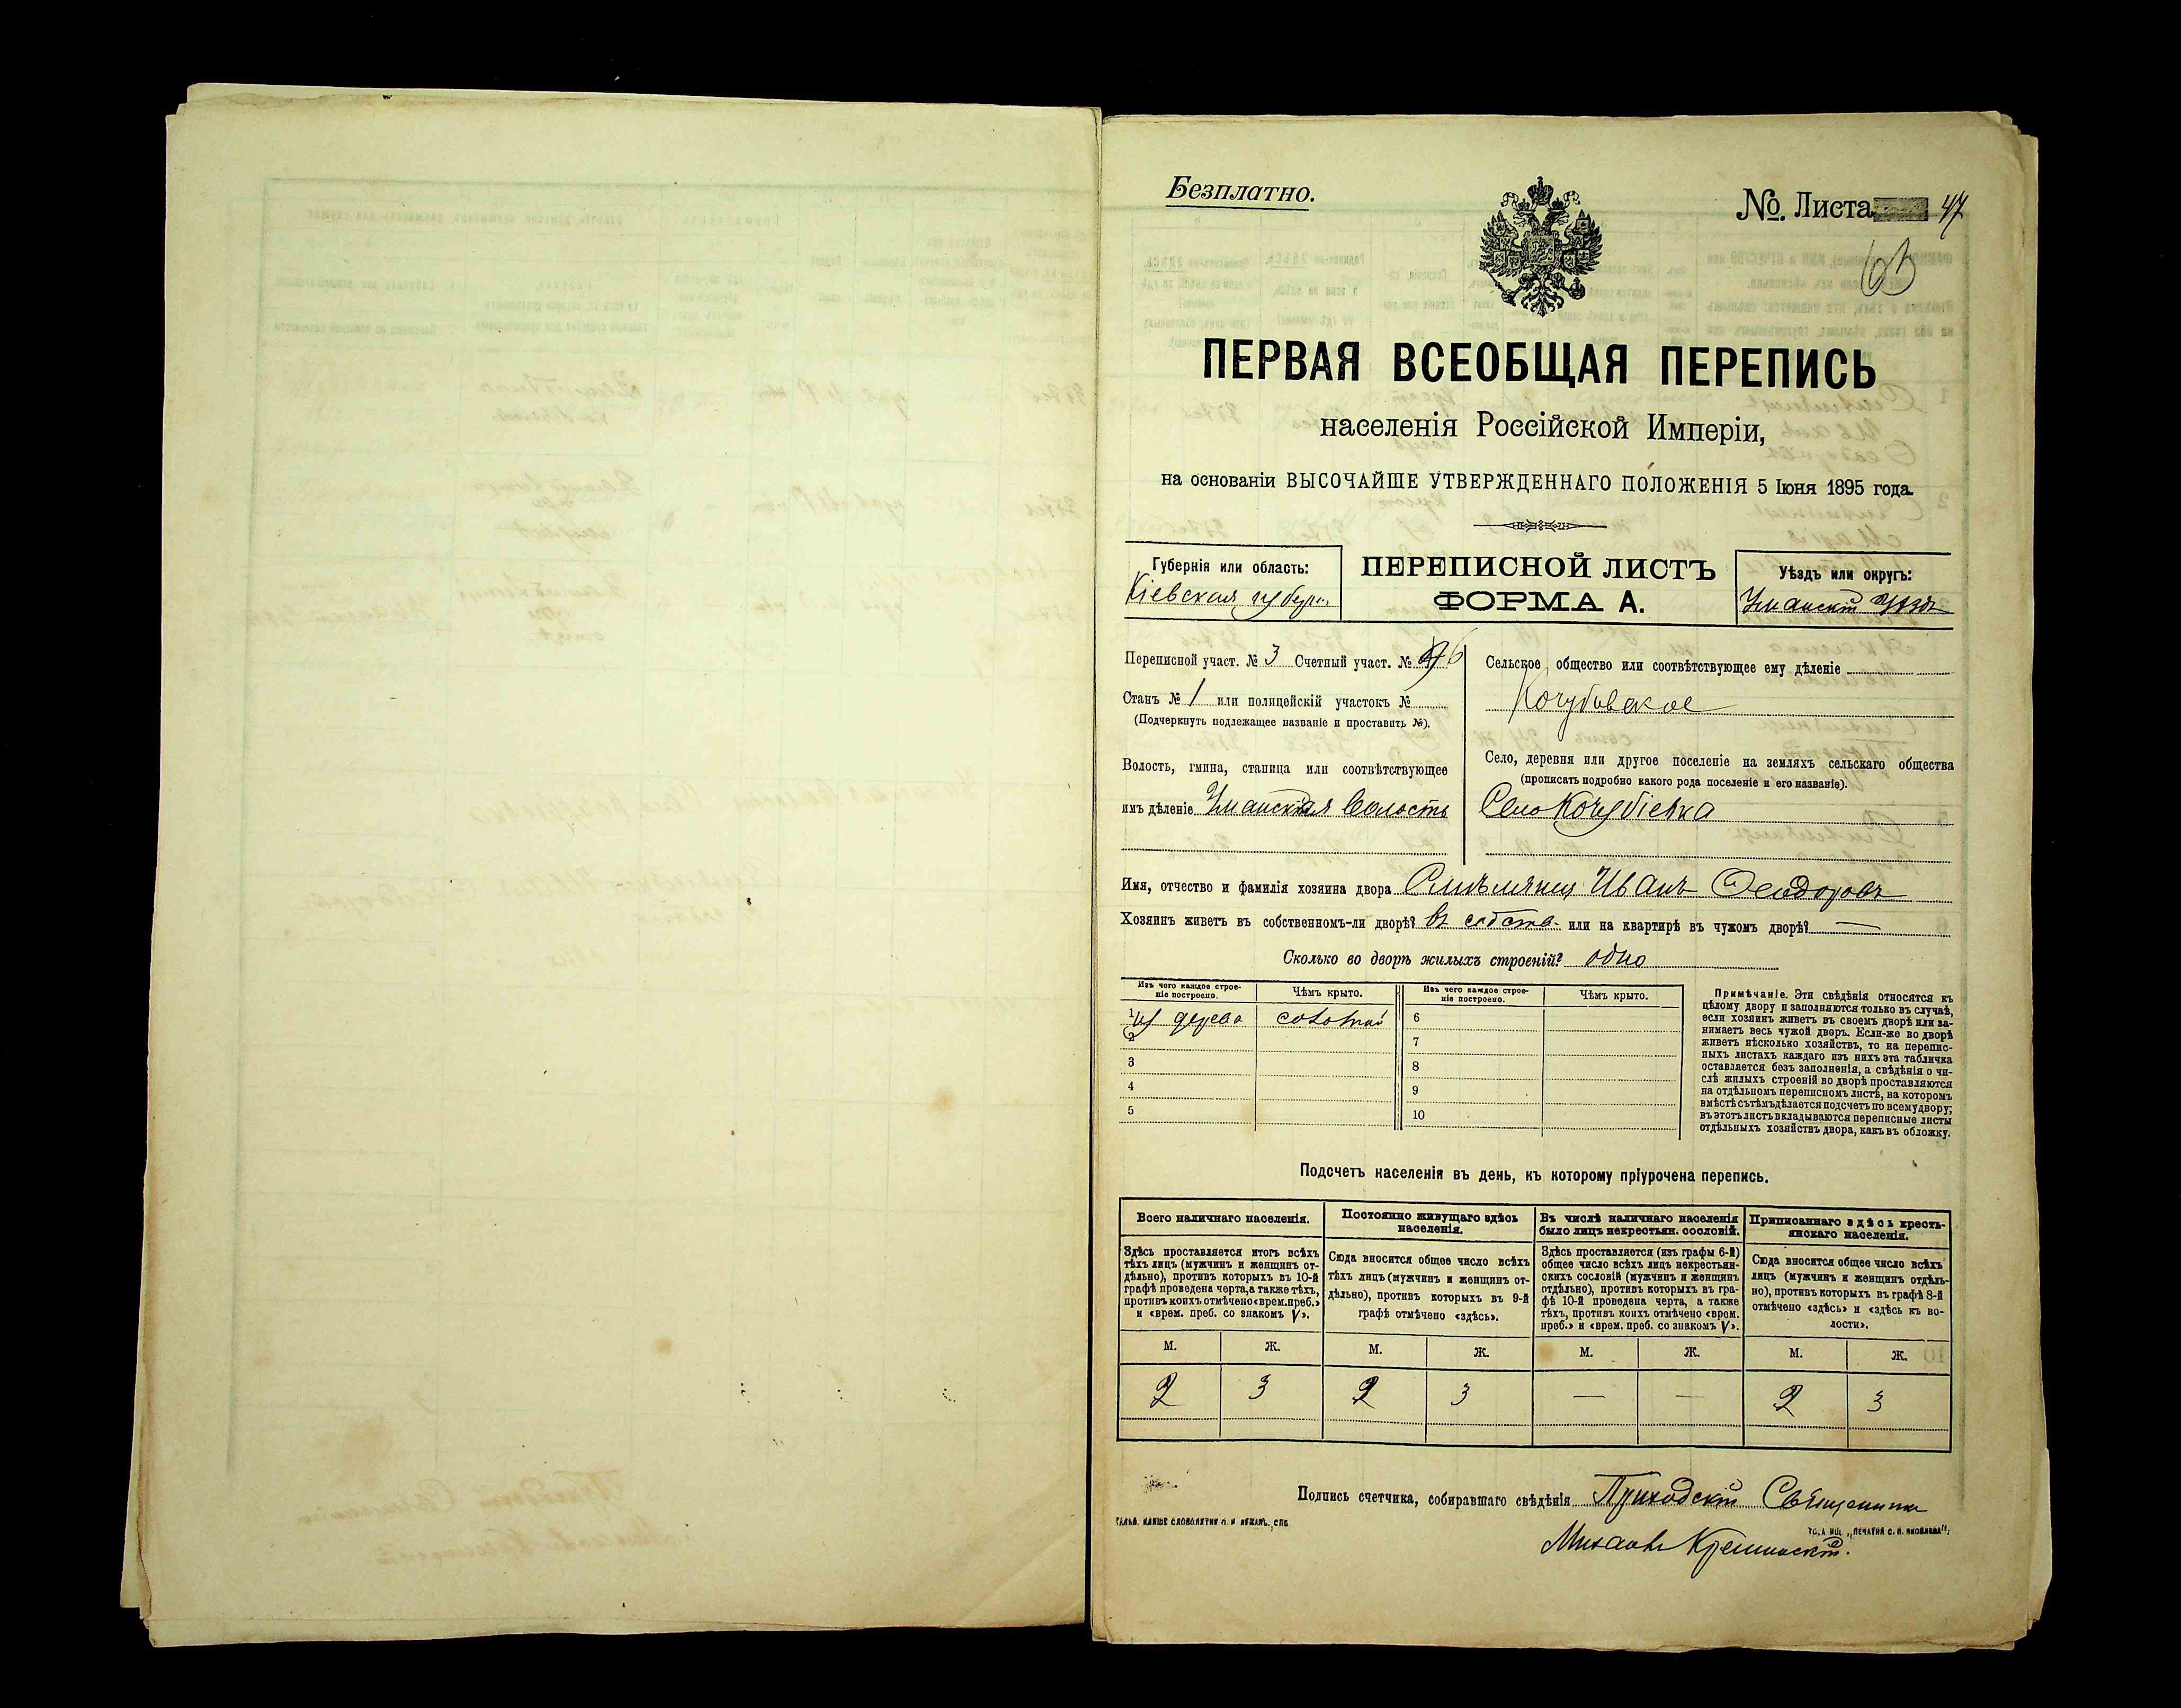 Безплатно.
№. Листа 47
ПЕРВАЯ ВСЕОБЩАЯ ПЕРЕПИСЬ
населенія Россійской Имперіи,
на основаніи ВЫСОЧАЙШЕ УТВЕРЖДЕННАГО ПОЛОЖЕНІЯ 5 Іюня 1895 года.
Губернія или область:
Кіевская губерн.
ПЕРЕПИСНОЙ ЛИСТЪ
ФОРМА А.
Уѣздъ или округъ:
Уманскій уѣздъ
Переписной участ. № 3 Счетный участ. №
Станъ № 1 или полицейскій участокъ №
(Подчеркнуть подлежащее названіе и проставить №).
Волость, гмина, станица или соотвѣтствующее
имъ дѣленіе Уманская Волость
Сельское общество или соотвѣтствующее ему дѣленіе
Кочубѣевское
Село, деревня или другое поселеніе на земляхъ сельскаго общества
(прописать подробно какого рода поселеніе и его названіе).
Село Кочубіевка
Имя, отчество и фамилія хозяина двора Иванъ Ѳеодоровъ
Хозяинъ живетъ въ собственномъ-ли дворѣ? въ собств. или на квартирѣ въ чужомъ дворѣ? —
Сколько во дворѣ жилыхъ строеній? одно
Изъ чего каждое строе-
ніе построено.
Чѣмъ крыто.
Изъ чего каждое строе-
ніе построено.
Чѣмъ крыто.
1 из дерева соломой
2
3
4
5
6
7
8
9
10
Примѣчаніе. Эти свѣдѣнія относятся къ
цѣлому двору и заполняются только въ случаѣ,
если хозяинъ живетъ въ своемъ дворѣ или за-
нимаетъ весь чужой дворъ. Если-же во дворѣ
живетъ нѣсколько хозяйствъ, то на перепис-
ныхъ листахъ каждаго изъ нихъ эта табличка
оставляется безъ заполненія, а свѣдѣнія о чи-
слѣ жилыхъ строеній во дворѣ проставляются
на отдѣльномъ переписномъ листѣ, на которомъ
вмѣстѣ съ тѣмъ дѣлается подсчетъ по всему двору;
въ этотъ листъ вкладываются переписные листы
отдѣльныхъ хозяйствъ двора, какъ въ обложку.
Подсчетъ населенія въ день, къ которому пріурочена перепись.
Всего наличнаго населенія.
Здѣсь проставляется итогъ всѣхъ
тѣхъ лицъ (мужчинъ и женщинъ от-
дѣльно), противъ которыхъ въ 10-й
графѣ проведена черта, а также тѣхъ,
противъ коихъ отмѣчено «врем. преб.»
и «врем. преб. со знакомъ V».
Постоянно живущаго здѣсь
населенія.
Сюда вносится общее число всѣхъ
тѣхъ лицъ (мужчинъ и женщинъ от-
дѣльно), противъ которыхъ въ 9-й
графѣ отмѣчено «здѣсь».
Въ числѣ наличнаго населенія
было лицъ некрестьян. сословій.
Здѣсь проставляется (изъ графы 6-й)
общее число всѣхъ лицъ некрестьян-
скихъ сословій (мужчинъ и женщинъ
отдѣльно), противъ которыхъ въ гра-
фѣ 10-й проведена черта, а также
тѣхъ, противъ коихъ отмѣчено «врем.
преб.» и «врем. преб. со знакомъ V».
Приписаннаго здѣсь кресть-
янскаго населенія.
Сюда вносится общее число всѣхъ
лицъ (мужчинъ и женщинъ отдѣль-
но), противъ которыхъ въ графѣ 8-й
отмѣчено «здѣсь» и «здѣсь къ во-
лости».
М. Ж. М. Ж. М. Ж. М. Ж.
2 3 2 3 — — 2 3
Подпись счетчика, собиравшаго свѣдѣнія Приходскій Священникъ
Михаилъ